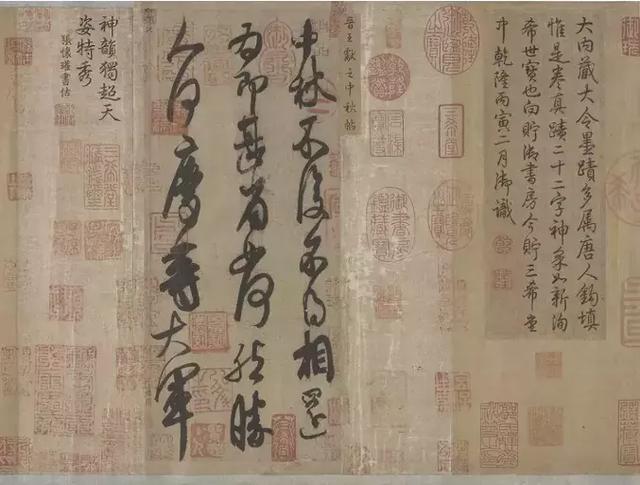 大内藏大令墨蹟多属唐人鈎填
惟是卷真蹟二十二字神采如新洵
希世寶也向貯御書房今貯三希堂
中乾隆丙寅二月御識
晉王獻之中秋帖
中秋不復不得相還
為即甚省如何然勝
人何慶等大軍
神韻獨超天
姿特秀
張懷瓘書估